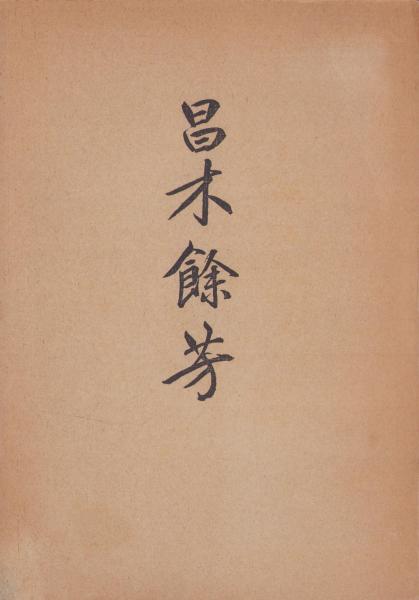 昌木餘芳